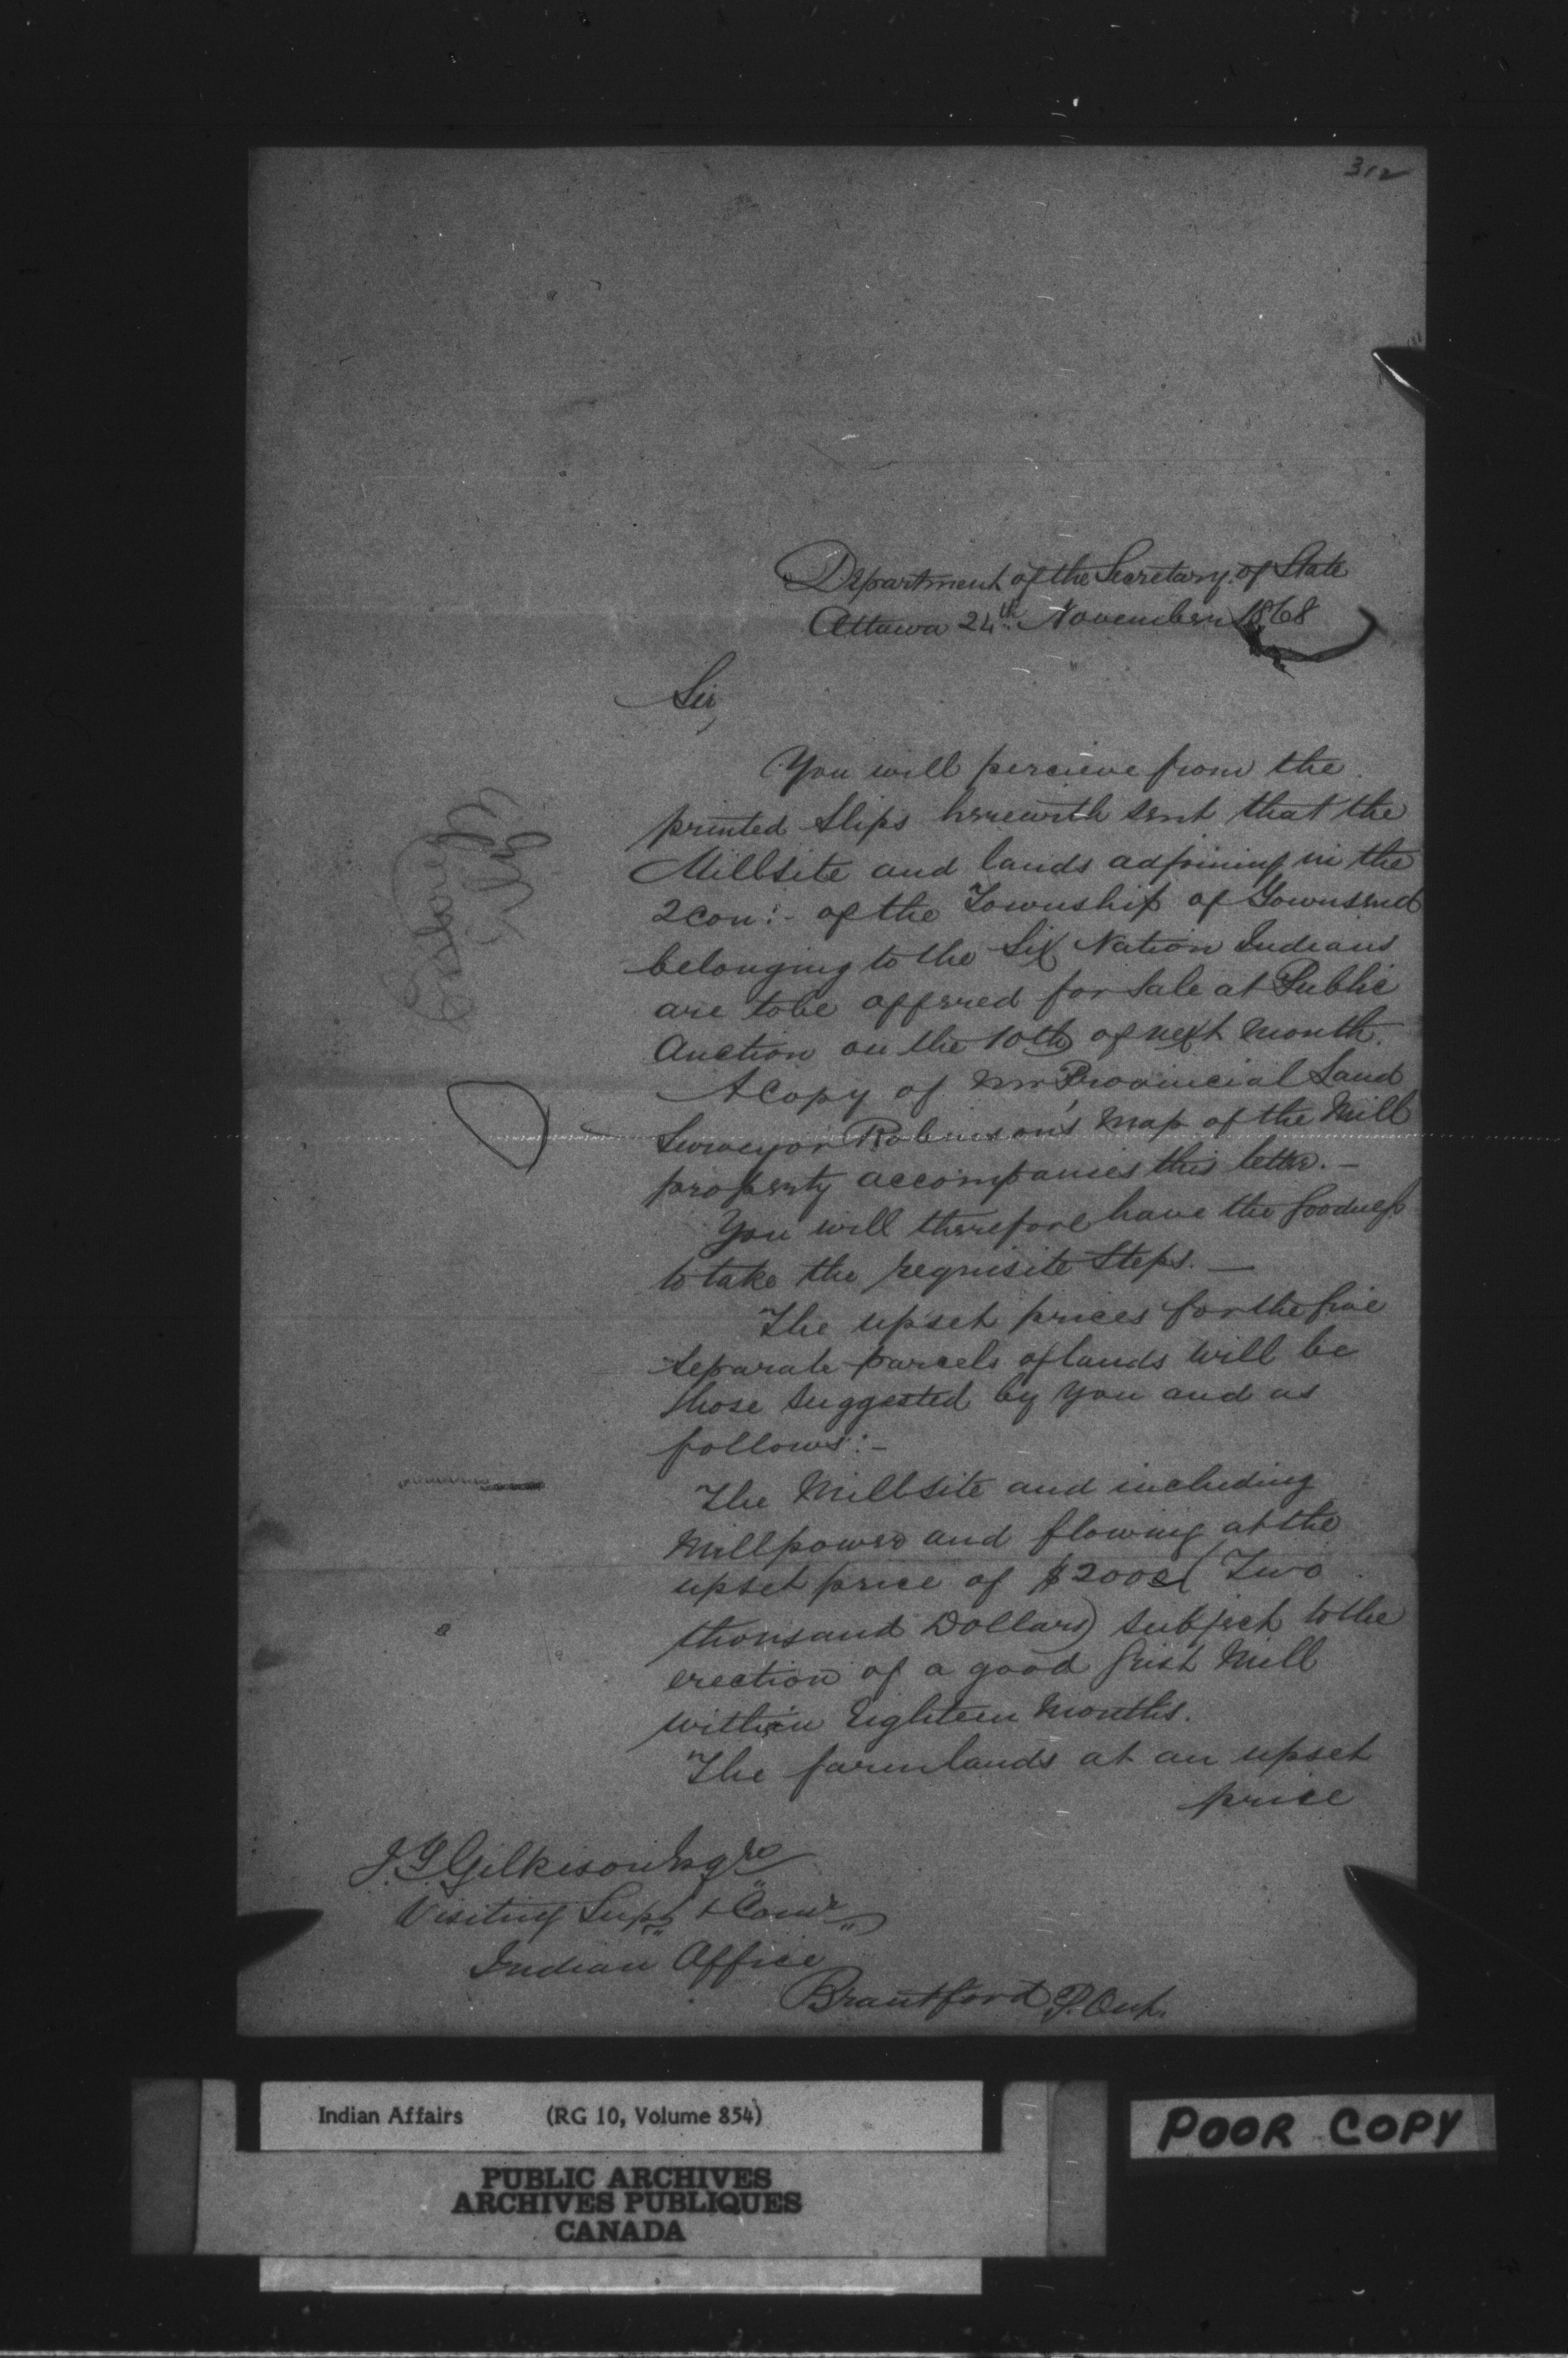 312
Department of the Secretary of State
Ottawa 24th November 1868
Sir,
You will percieve from the
printed Slips herewith sent that the
Millsite and lands adjoining in the
2 Con:- of the Township of Townsend
belonging to the Six Nation Indians
are to be offered for Sale at Public
Auction on the 10th of next Month.
A Copy of Mr Provincial Land
Surveyor Robinson's Map of the Mill
property accompanies this letter. -
You will therefore have the goodness
to take the requisite Steps. —
The upset prices for the five
separate parcels of lands will be
those suggested by you and as
follows:-
The Millsite and including
Millpower and flowing at the
upset price of $2000 (Two
thousand Dollars) subject to the
erection of a good Grist Mill
within Eighteen Months.
The farmlands at an upset
price
J. T. Gilkison Esqre
Visiting Supt & Comr
Indian Office
Brantford P. Ont.
Indian Affairs (RG 10, Volume 854)
PUBLIC ARCHIVES
ARCHIVES PUBLIQUES
CANADA
POOR COPY